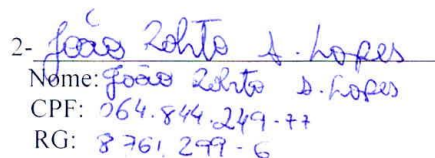 2- João Roberto A. Lopes
Nome: João Roberto A. Lopes
CPF: 064.844.249-77
RG: 8761.299-6